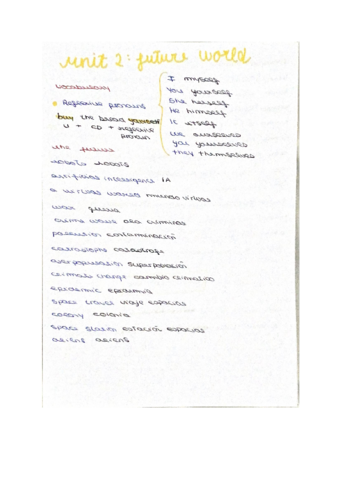 unit 2: future world
vocabulary
• Reflexive pronouns
I myself
You yourself
She herself
He himself
It itself
We ourselves
You yourselves
they themselves
buy the bread yourself
V + CD + reflexive pronoun
the future
robots robots
artificial intelligence IA
a virtual world mundo virtual
war guerra
crime wave ola
pollution contaminación
catastrophe catástrofe
overpopulation superpoblación
climate change cambio climático
epidemic epidemia
space travel viaje espacial
colony colonia
space station estación espacial
aliens aliens